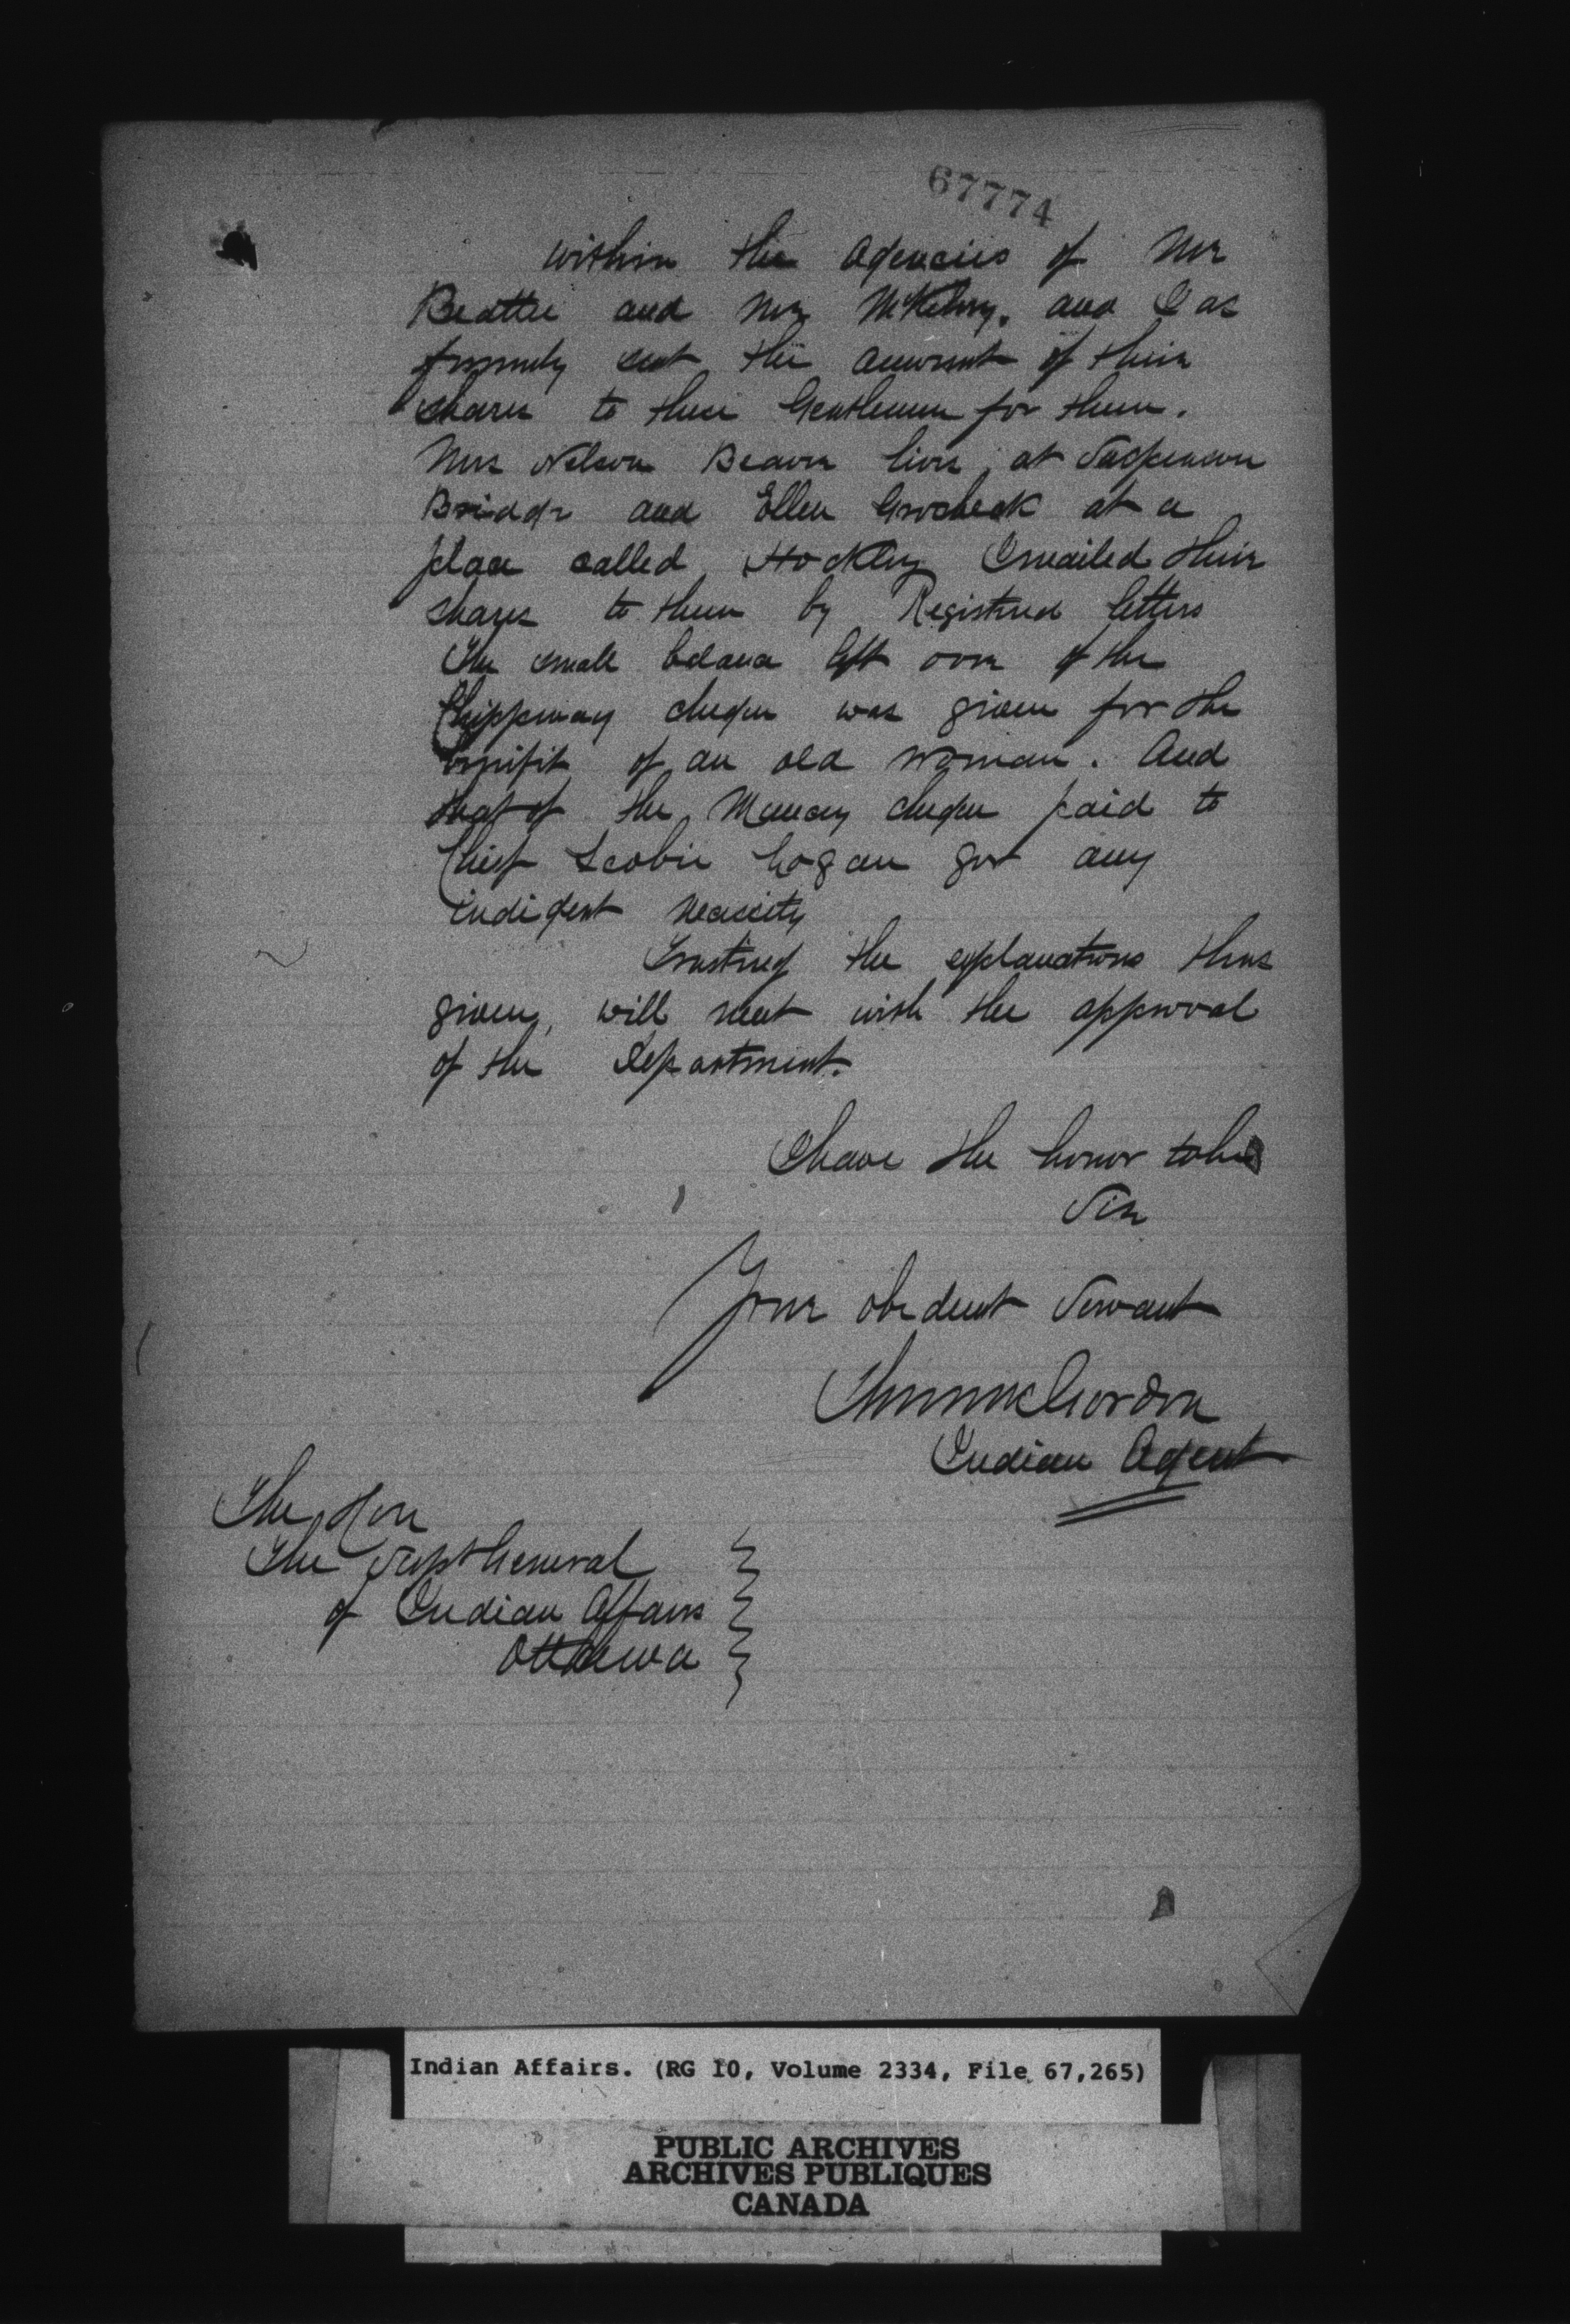 67774
within the Agencies of Mr
Beattie and Mr McKelvey. and I as
formerly sent the amount of their
shares to these Gentlemen for them.
Mrs Nelson Beaver lives at Suspension
Bridge and Ellen at a
place called Hockley I mailed their
shares to them by Registered letters
The small balance left over of the
Chippeway cheque was given for the
benifit of an old woman. And
that of the Muncey cheque paid to
Chief Scobie Logan for any
indigent necessity
Trusting the explanations thus
given, will meet with the approval
of the Department.
I have the honor to be
Sir
Your obedient Servant
Gordon
Indian Agent
The Hon
The Supt General
of Indian Affairs
Ottawa
Indian Affairs. (RG 10, Volume 2334, File 67,265)
PUBLIC ARCHIVES
ARCHIVES PUBLIQUES
CANADA